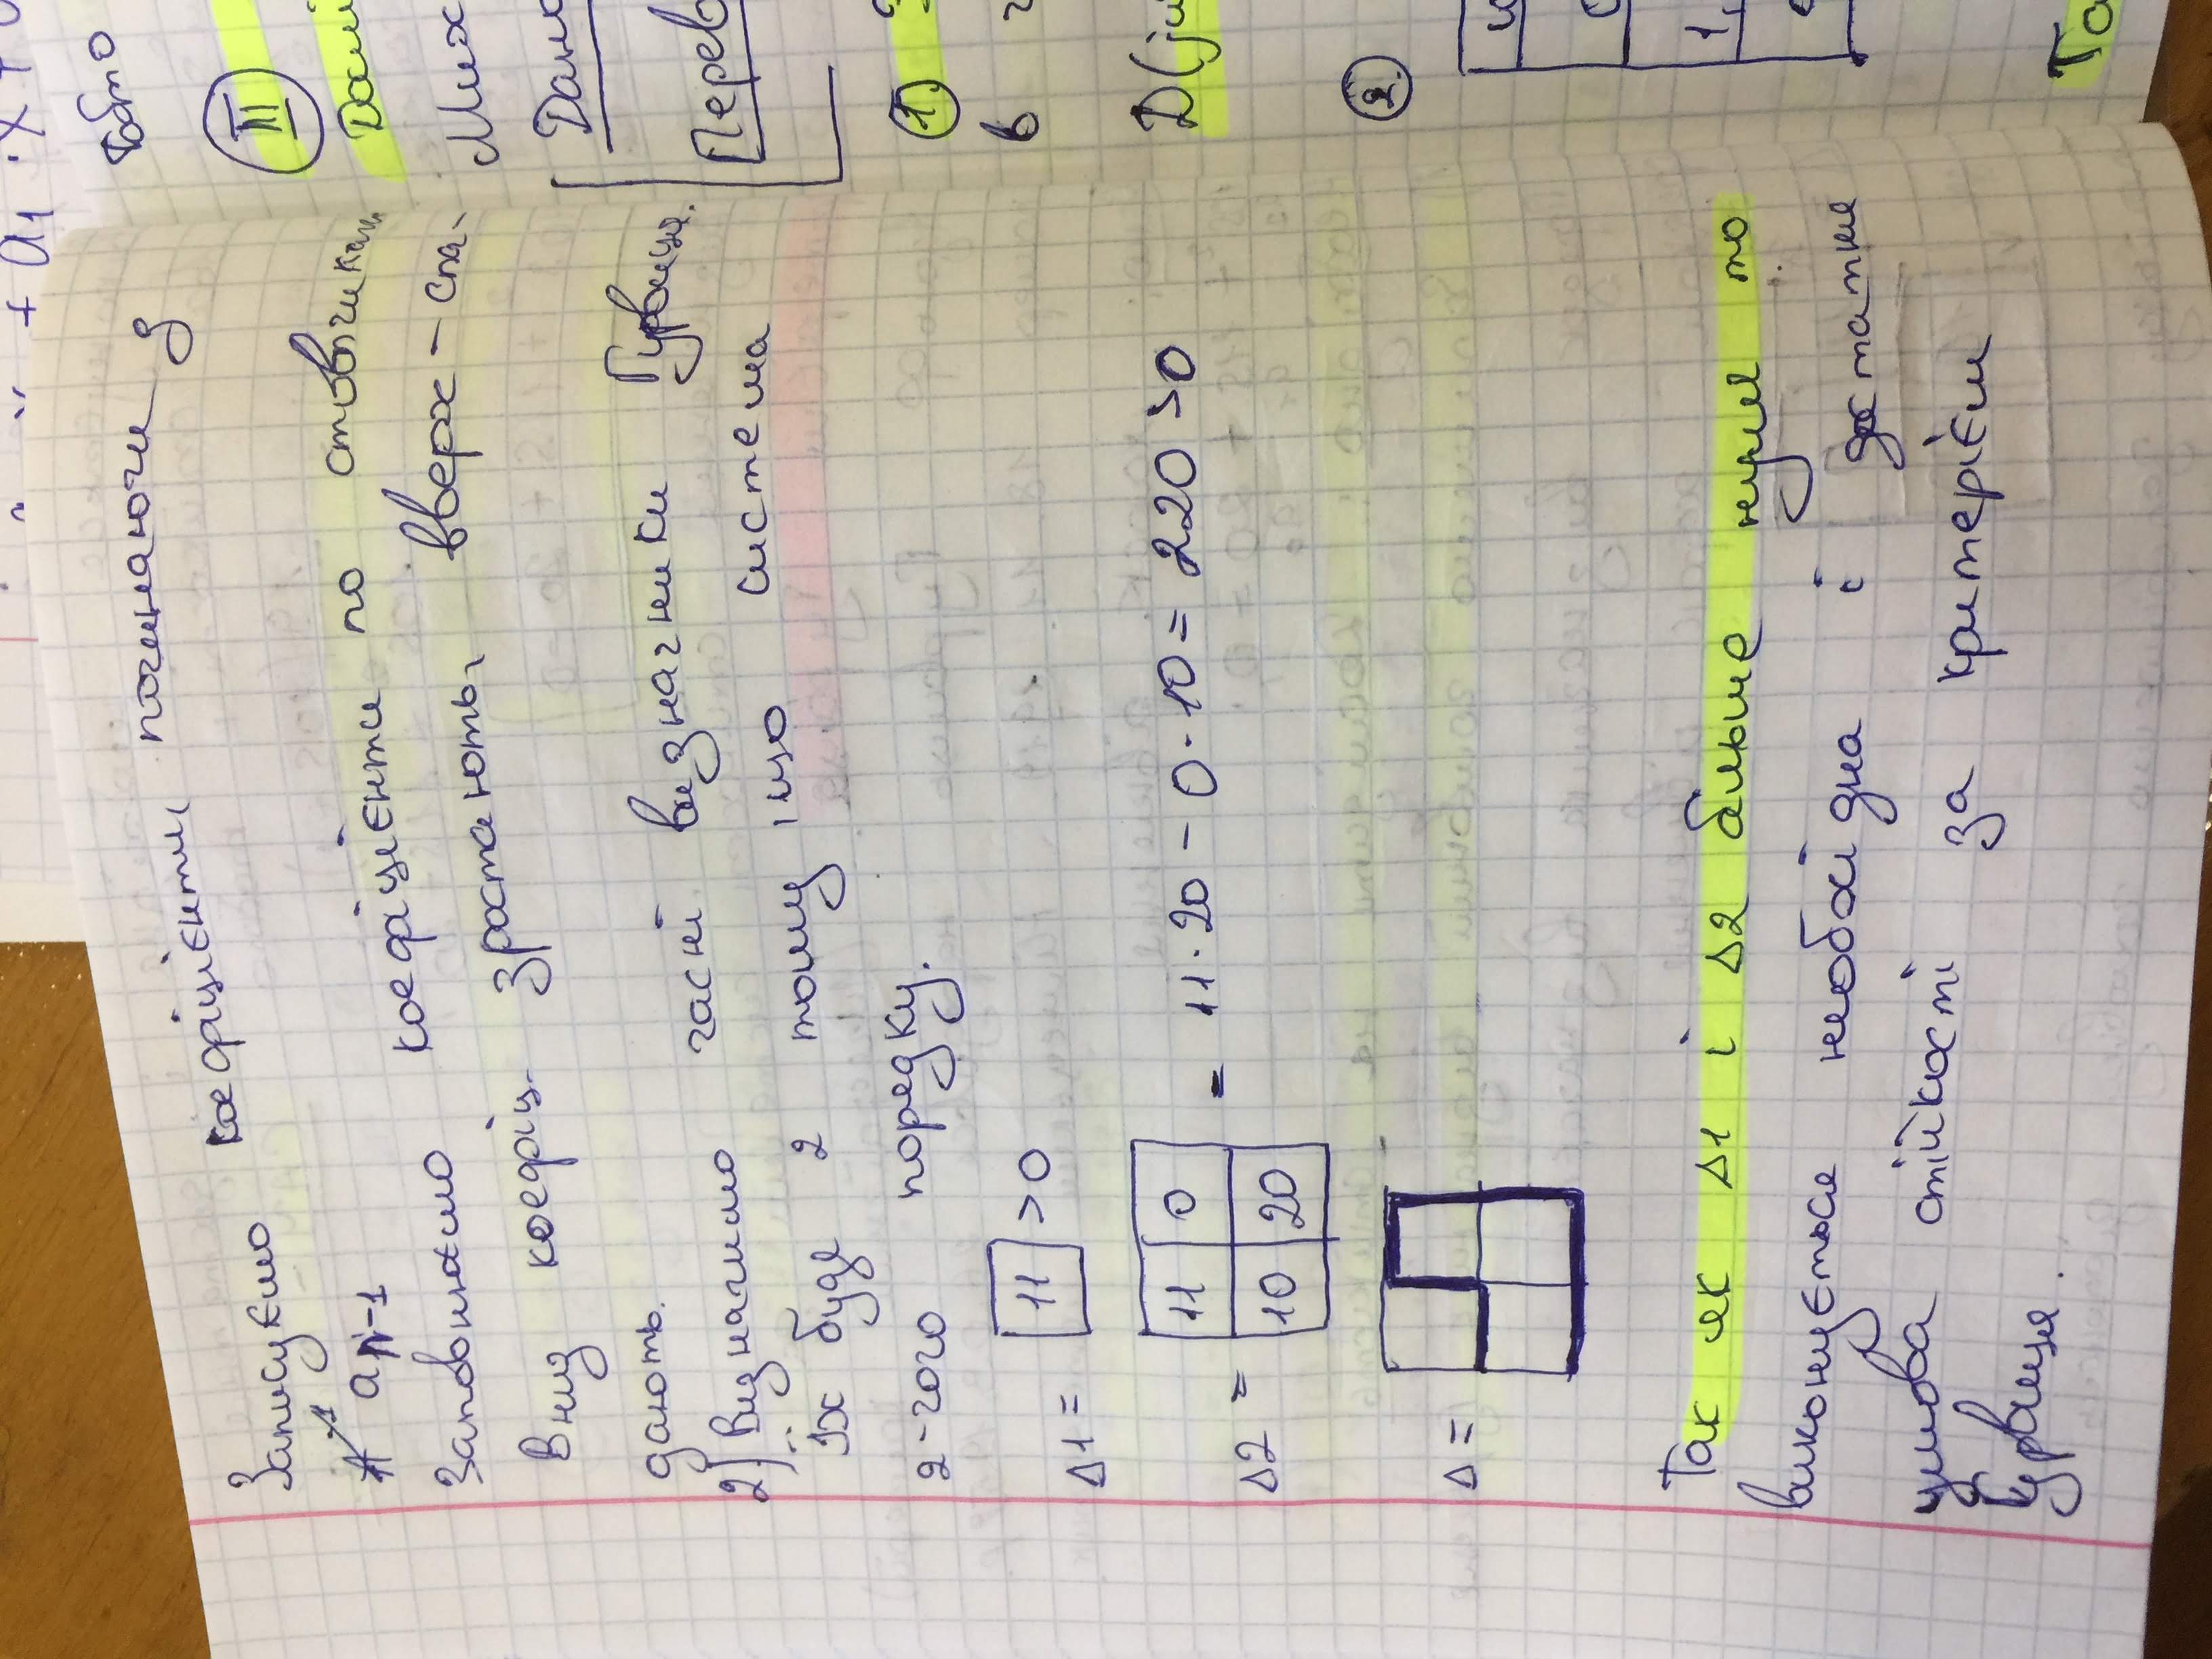 + a1 · x +
Записуємо коефіцієнти, починаючи з
an-1
Заповнюємо коефіцієнти по стовпчикам
Вниз коефіц. зростають, вверх - спа-
дають.
2) Визначимо часні визначники Гурвиця.
Їх буде 2 тому, що система
2-гого порядку.
Δ1 = 11 >0
Δ2 = 11 0 10 20 = 11·20 - 0·10 = 220 >0
Δ =
Так як Δ1 і Δ2 більше нуля то
виконується необхідна і достатня
умова стійкості за критерієм
Гурвиця.
тобто
III
Дослі
Мих
Дано
Перев
1.
в
D(jω
2.
0
1,
Та